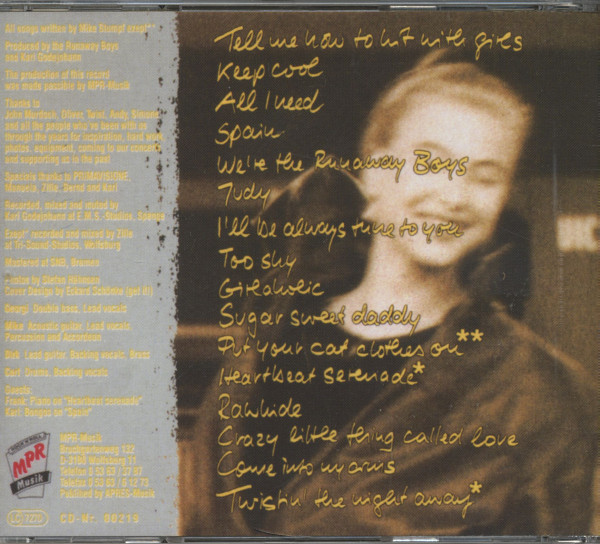 All songs written by Mike Stumpf exept**
Produced by the Runaway Boys
and Karl Godejohann
The production of this record
was made possible by MPR-Musik
Thanks to
John Murdoch, Oliver Twist, Andy
and all the people who've been with us
through the years for inspiration, hard work
photos, equipment, coming to our concerts
and supporting us in the past
Specials thanks to
Manuela, Zille, Bernd and Karl
Recorded, mixed and muted by
Karl Godejohann at E.M.S.-Studios,
Exept* recorded and mixed by Zille
at Tri-Sound-Studios, Wolfsburg
Mastered at SNB, Bremen
Photos by Stefan
Cover Design by Eckard (get it!)
Georgi Double bass, Lead vocals
Mike Acoustic guitar, Lead vocals,
Percussion and Accordeon
Dirk Lead guitar, Backing vocals, Brass
Carl Drums, Backing vocals
Guests:
Frank: Piano on "Heartbeat serenade"
Karl: Bongos on "Spain"
ROCK'N'ROLL
MPR
Musik
MPR-Musik
132
D-3180 Wolfsburg 11
Telefon 0 53 63 /
Telefax 0 53 63 / 6 12 73
Published by APRES-Musik
LC 7275
CD-Nr. 88219
Tell me how to hit with girls
Keep cool
All I need
Spain
We're the Runaway Boys
Judy
I'll be always tune to you
Too shy
Girlaholic
Sugar sweet daddy
Put your cat clothes on**
Heartbeat serenade*
Rawhide
Crazy little thing called love
Come into my arms
Twistin' the night away*